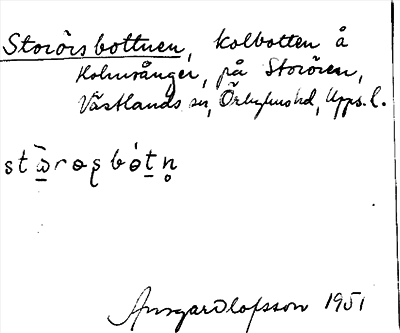 Storörsbottnen, kolbotten å
Holmsånger, på Storören,
Västlands sn, Örbyhus hd, Upps. l.
stω̄̀rɵʂbɵ́tn̥
Ansgar Olofsson 1951